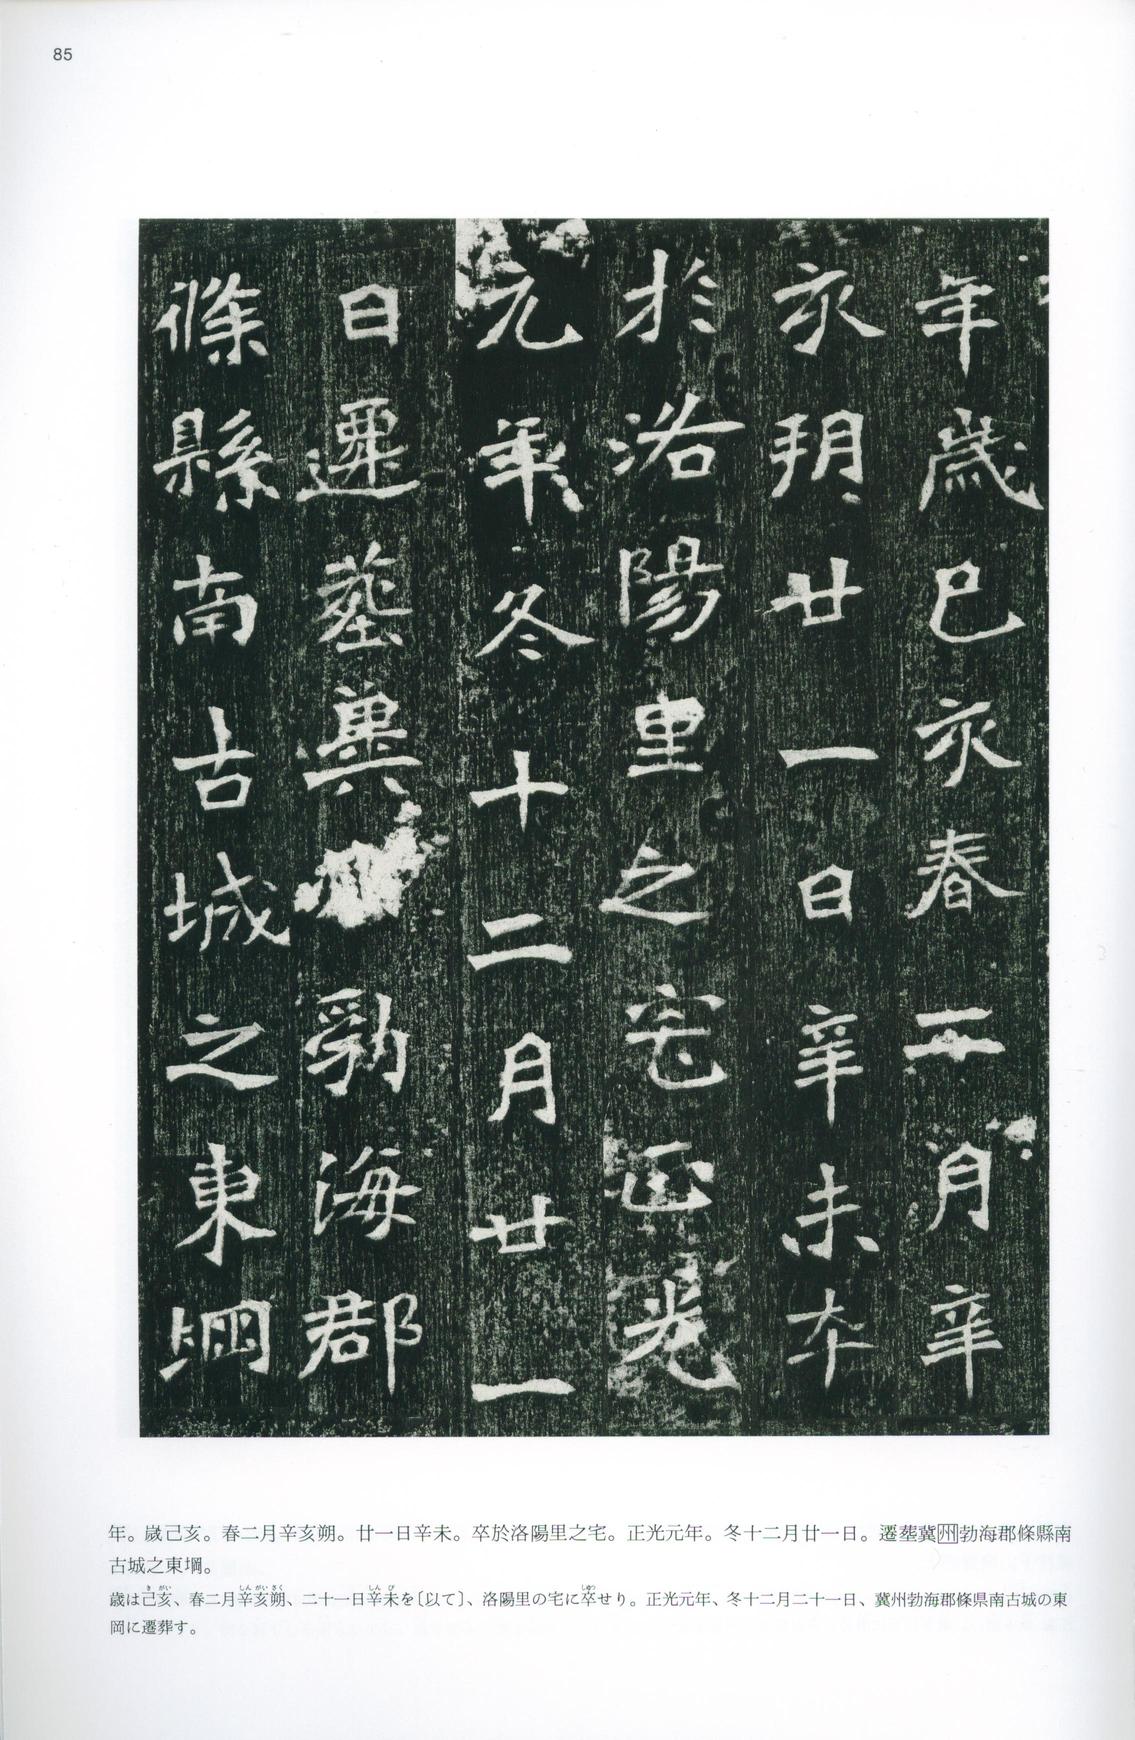 85
年歲己亥春二月辛
亥朔廿一日辛未卒
於洛陽里之宅正光
元年冬十二月廿一
日遷塟冀勃海郡
條縣南古城之東堈
年。歲己亥。春二月辛亥朔。廿一日辛未。卒於洛陽里之宅。正光元年。冬十二月廿一日。遷塟冀州勃海郡條縣南
古城之東堈。
歳は己亥、春二月辛亥朔、二十一日辛未を〔以て〕、洛陽里の宅に卒せり。正光元年、冬十二月二十一日、冀州勃海郡條県南古城の東
岡に遷葬す。